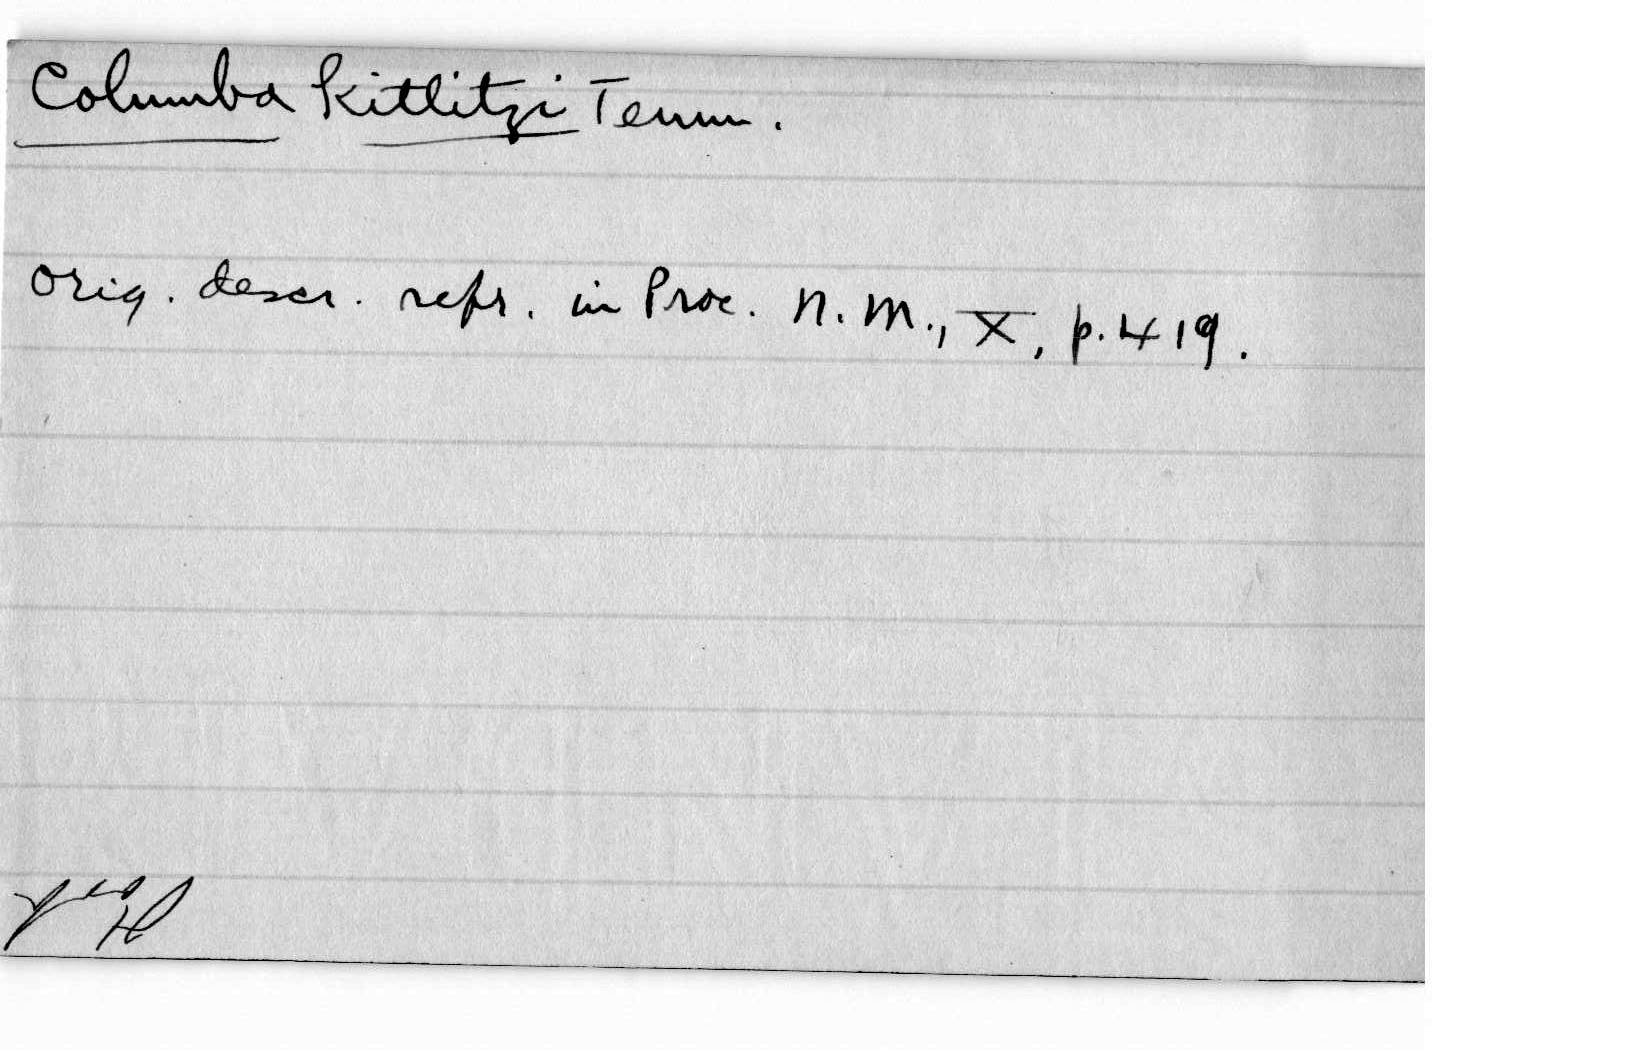 Columba Kittlitzi Temm.
Orig. descr. repr. in Proc. N.M., X, p. 419.